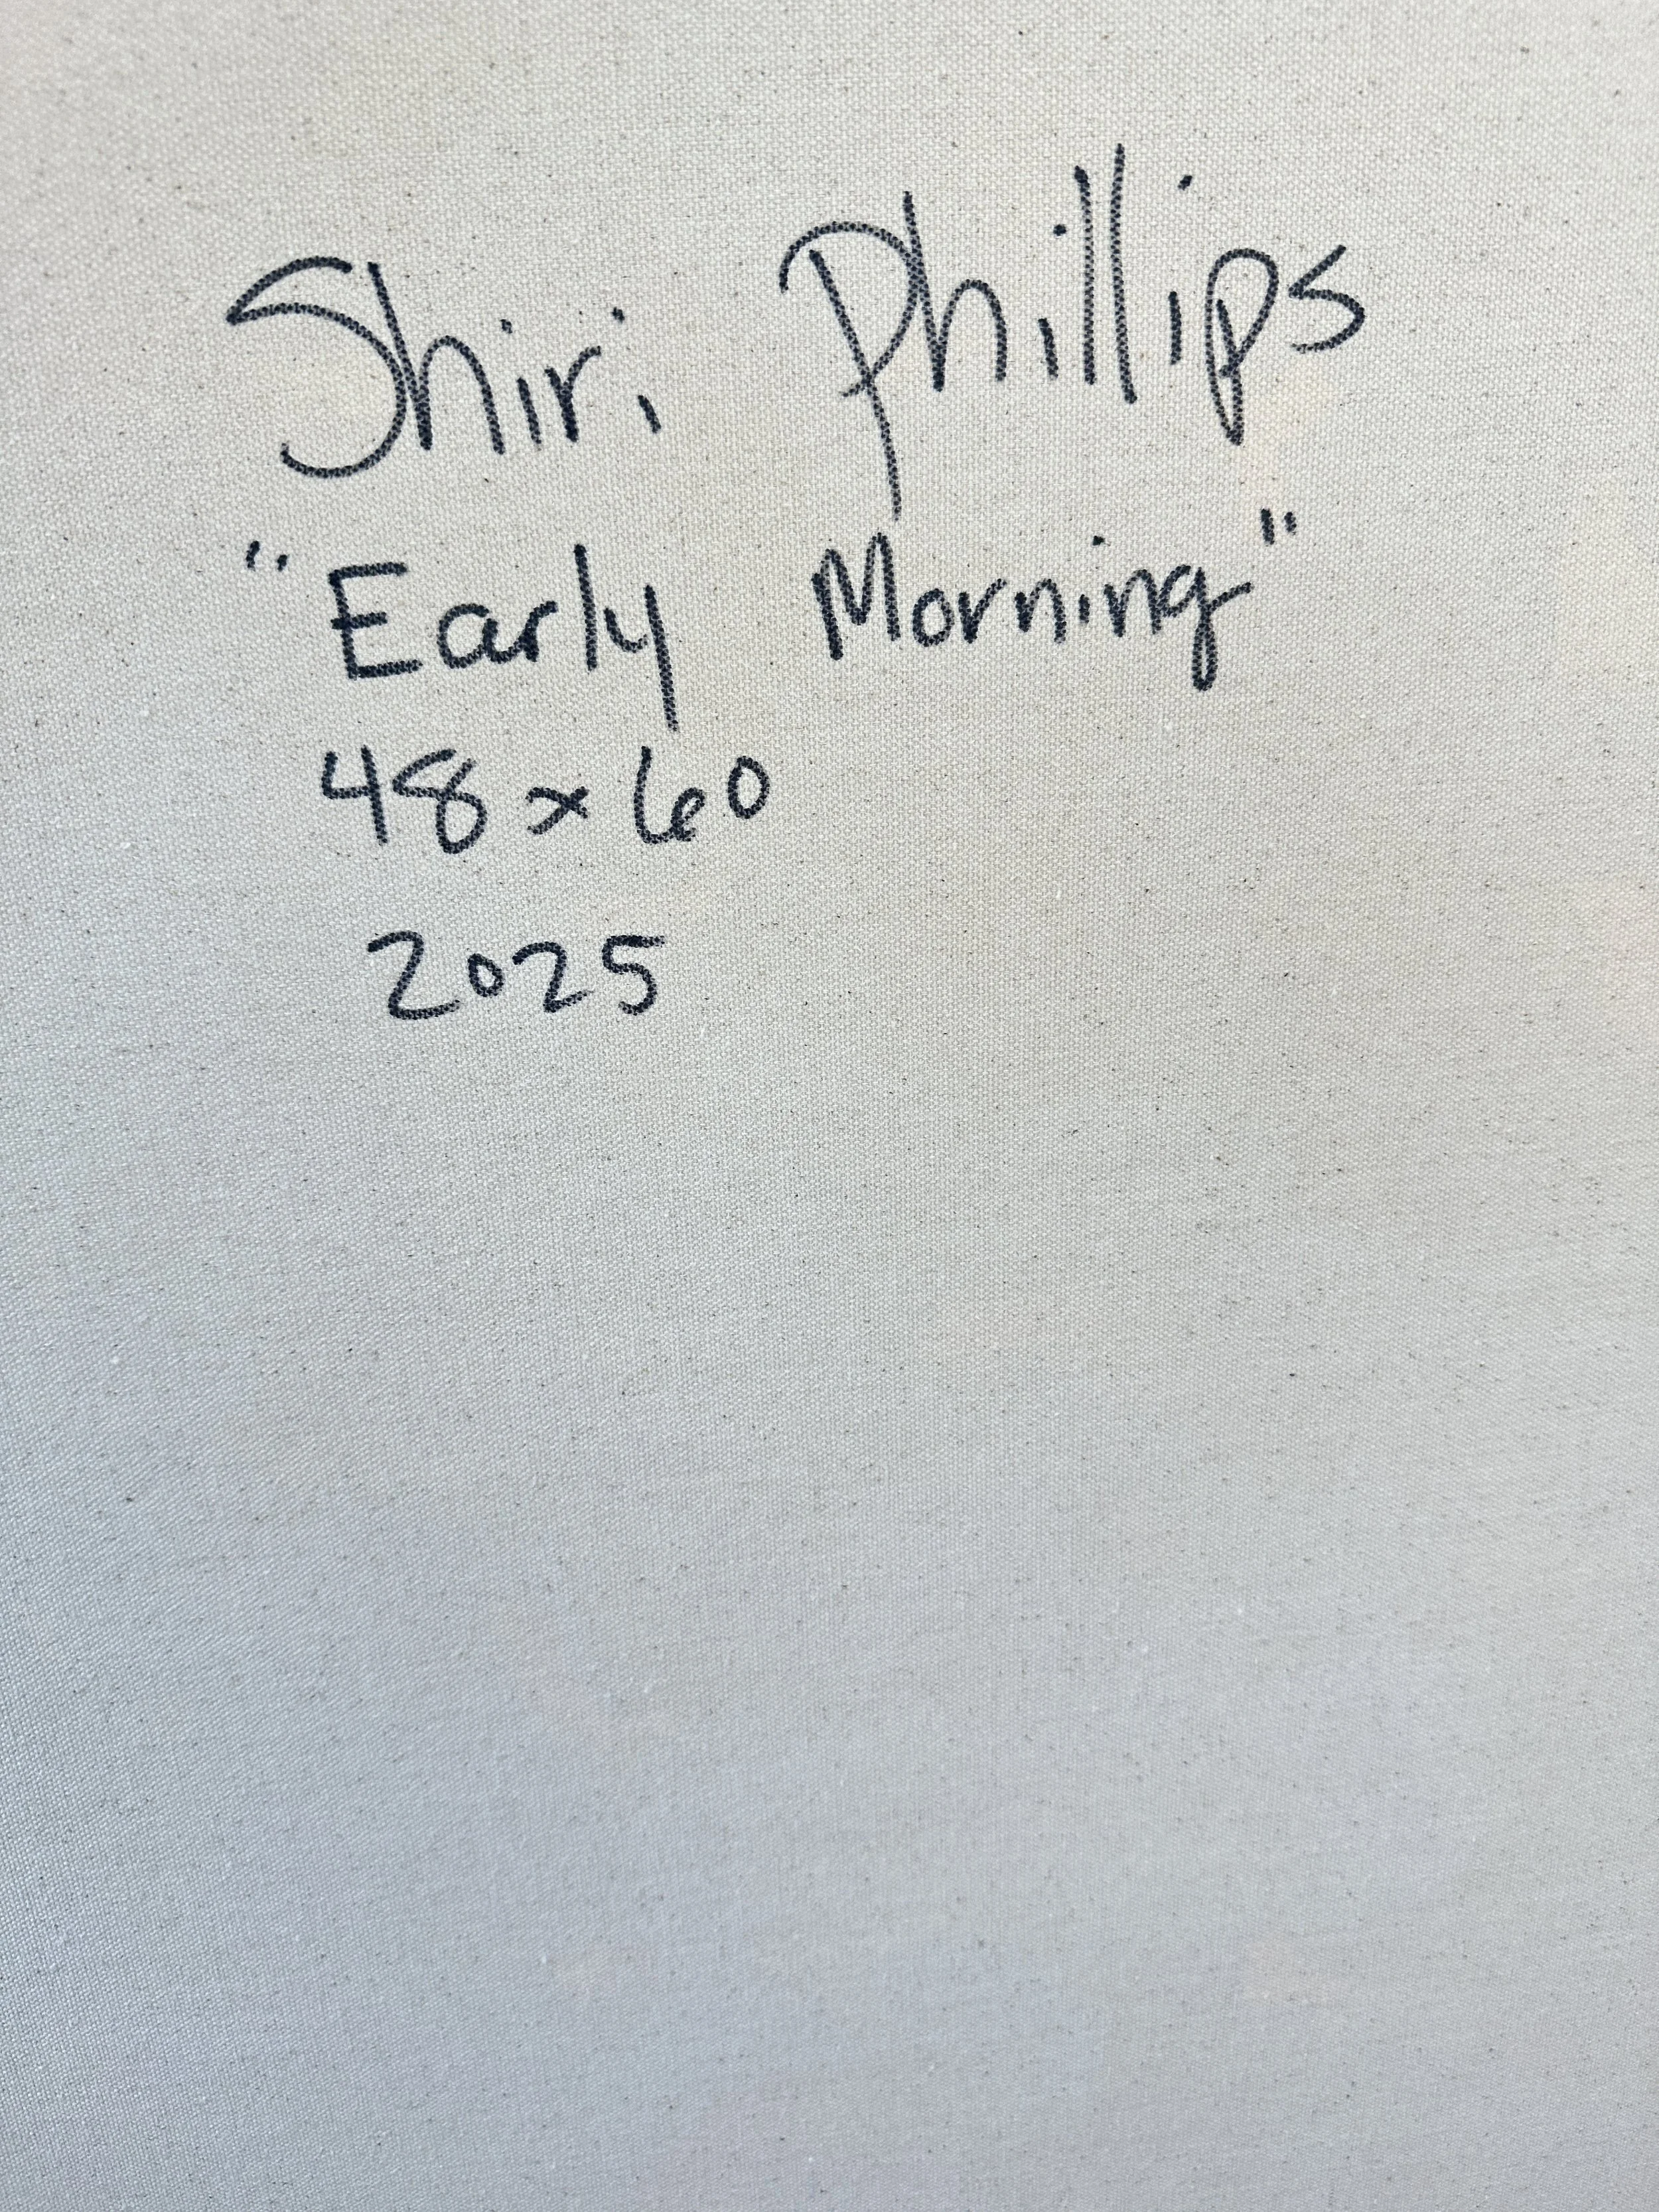 Shiri Phillips
"Early Morning"
48 x 60
2025